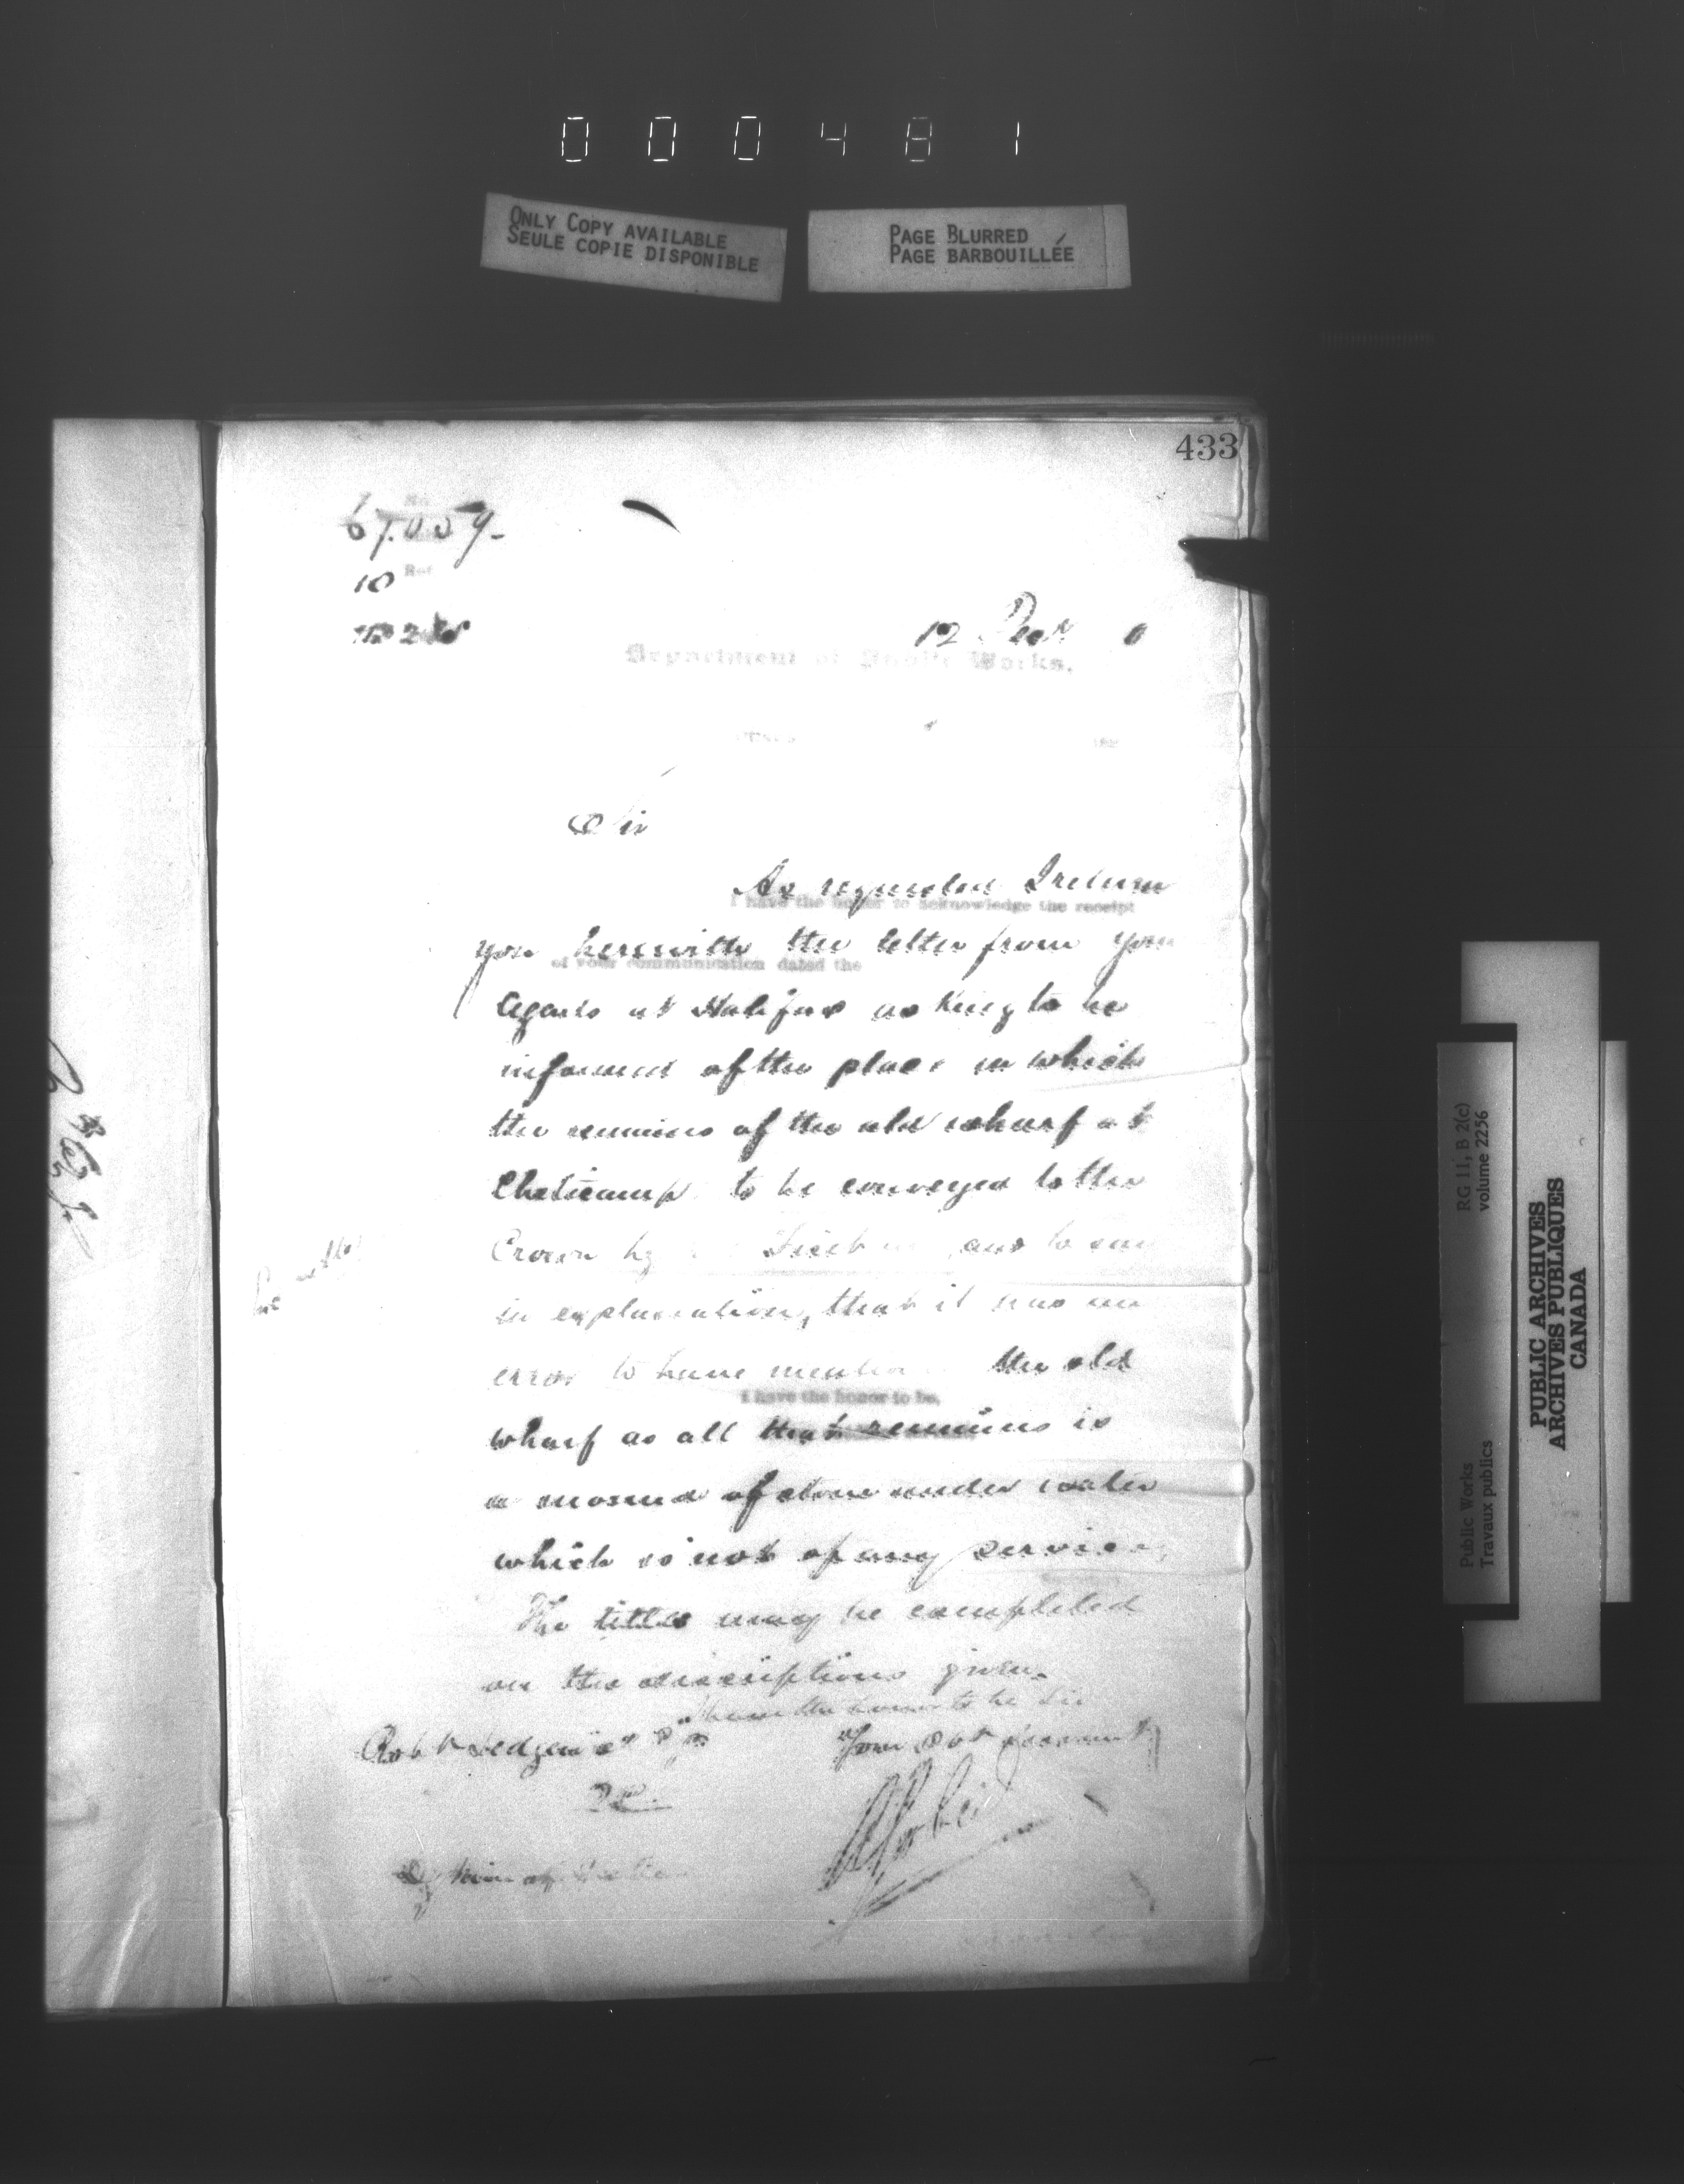 000481
ONLY COPY AVAILABLE
SEULE COPIE DISPONIBLE
PAGE BLURRED
PAGE BARBOUILLÉE
433
10
12 Decr
Department of Public Works.
Sir
As requested I return
I have the honor to acknowledge the receipt
you herewith the letter from your
of your communication dated the
Agents at Halifax asking to be
informed of the place in which
the remains of the old wharf at
Cheticamp to be conveyed to the
Crown by and to say
in explanation, that it was an
error to have the old
I have the honor to be,
wharf as all that remains is
a mound of stone under water
which is not of any service,
The titles may be completed
on the descriptions given.
I have the honor to be Sir
Your Obt Servant
Robt Sedgewick
Dy Min of Justice
RG 11, B 2(c)
volume 2256
Public Works
Travaux publics
PUBLIC ARCHIVES
ARCHIVES PUBLIQUES
CANADA